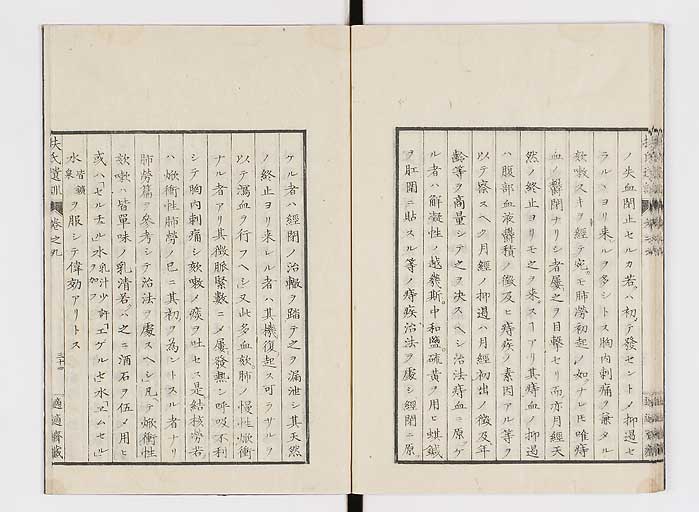 ノ失血閉止セルカ若ハ初テ發セントノ抑過セ
ラルヽヨリ来ルヲ多シトス胸内刺痛ヲ兼タル
欬嗽スキヲ經テ宛モ肺澇初起ノ如ナレ𪜈唯痔
血ノ鬱閉ナリシ者屢之ヲ目擊セリ而亦月經天
然ノ終止ヨリモ之ヲ来スヿアリ其痔血ノ抑遏
ハ腹部血液欝積ノ徴及ヒ痔疾ノ素因アル等ヲ
以テ察スヘク月經ノ抑遏ハ月經初出ノ徴及年
齡等ヲ商量シテ之ヲ决スヘシ治法痔血ニ原ケ
ル者ハ解凝性ノ越幾斯中和鹽硫黄ヲ用ヒ蜞鍼
ヲ肛圍ニ貼スル等ノ痔疾治法ヲ處シ經閉ニ原
ケル者ハ經閉ノ治轍ヲ踏テ之ヲ漏泄シ其天然
ノ終止ヨリ来レル者ハ其機復起ス可ラサルヲ
以テ瀉血ヲ行フヘシ又此多血欬肺ノ慢性焮衝
ナル者アリ其徴脈緊數ニメ屢發熱シ呼吸不利
シテ胸内刺痛シ欬嗽ノ痰ヲ吐セス是結核澇若
ハ焮衝性肺勞ノ已ニ其初ヲ為ントスル者ナリ
肺勞篇ヲ參考シテ治法ヲ處スヘシ凡テ焮衝性
欬嗽ハ皆單味ノ乳清若ハ之ニ酒石ヲ伍メ用ヒ
或ハ「セルチェル」水乳汁少許ヲ加フ「エゲル」水「ヱムセル」
水皆鑛泉ヲ服シテ偉効アリトス
扶氏遺訓
卷之九
三十四
適適齋藏